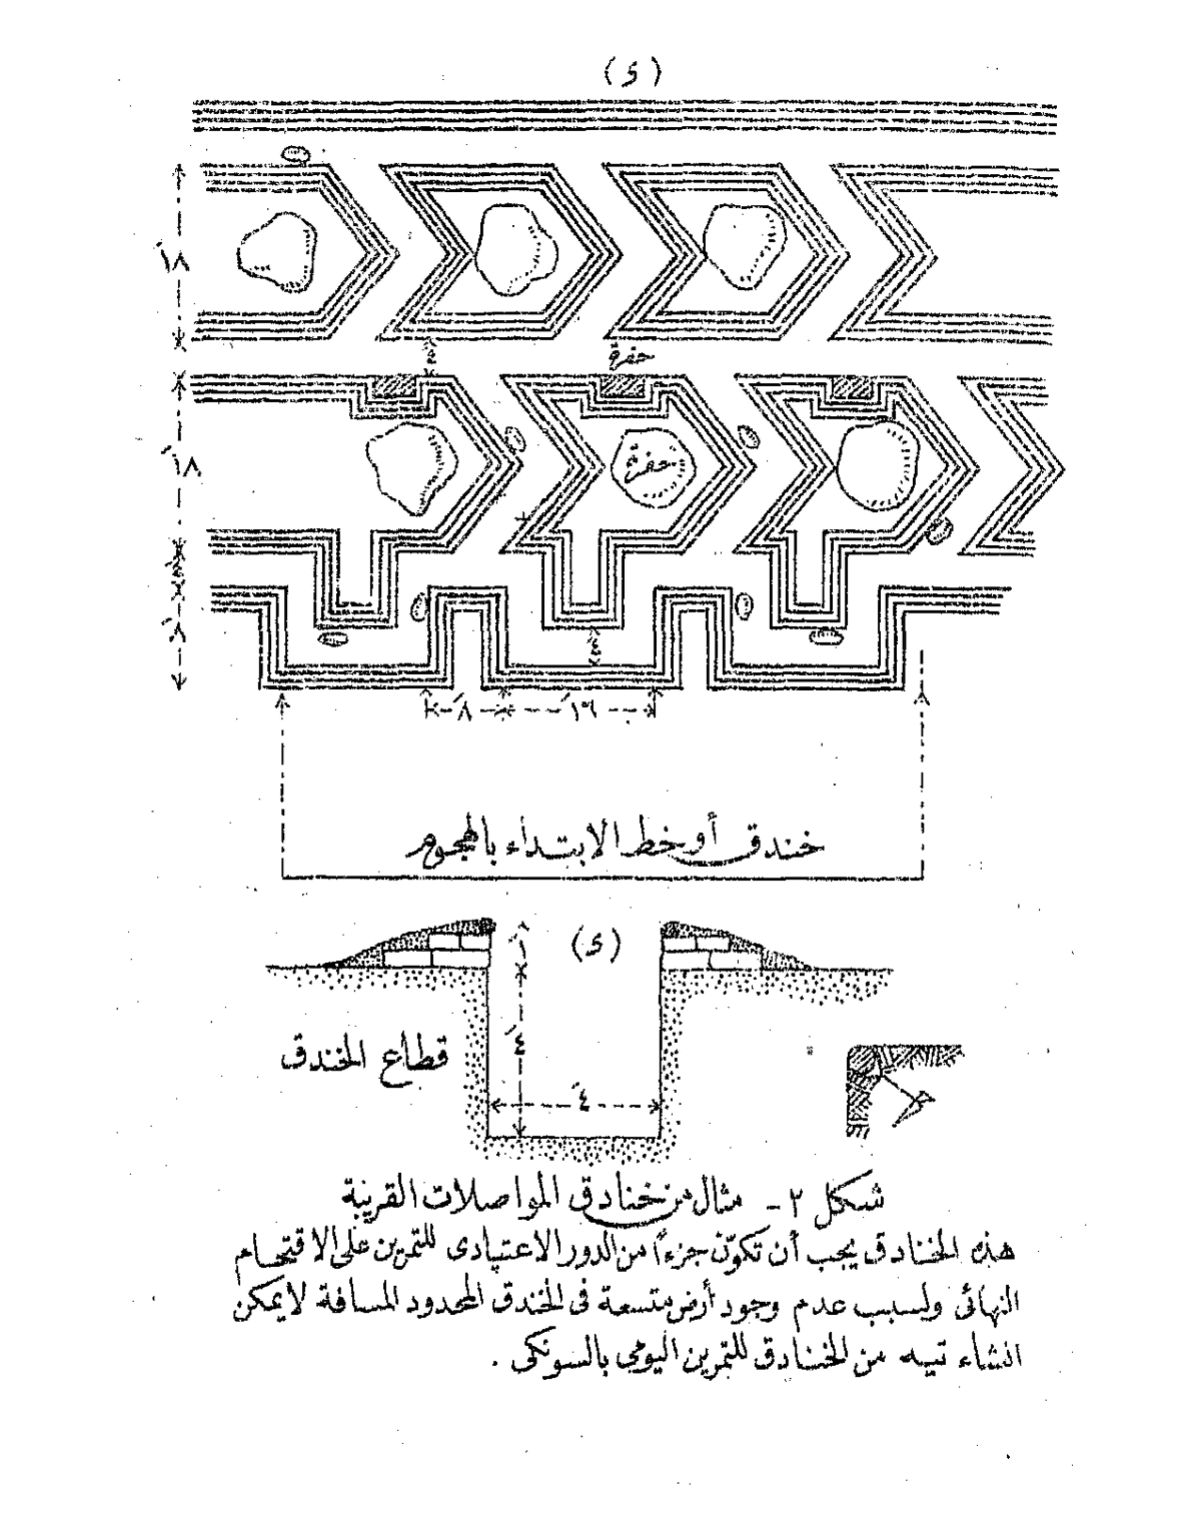 (ی)
١٨َ
٤َ
حفرة
١٨َ
حفرة
٤َ
٨َ
٤َ
٨َ
١٦َ
خندق أو خط الابتداء بالهجوم
(ی)
١َ
قطاع الخندق
٤َ
٤َ
شكل ٢ - مثال من خنادق المواصلات القريبة
هذه الخنادق يجب أن تكوّن جزءاً من الدور الاعتيادى للتمرين على الاقتحام
النهائى ولسبب عدم وجود أرض متسعة فى الخندق المحدود المسافة لا يمكن
انشاء تيه من الخنادق للتمرين اليومى بالسونكى .